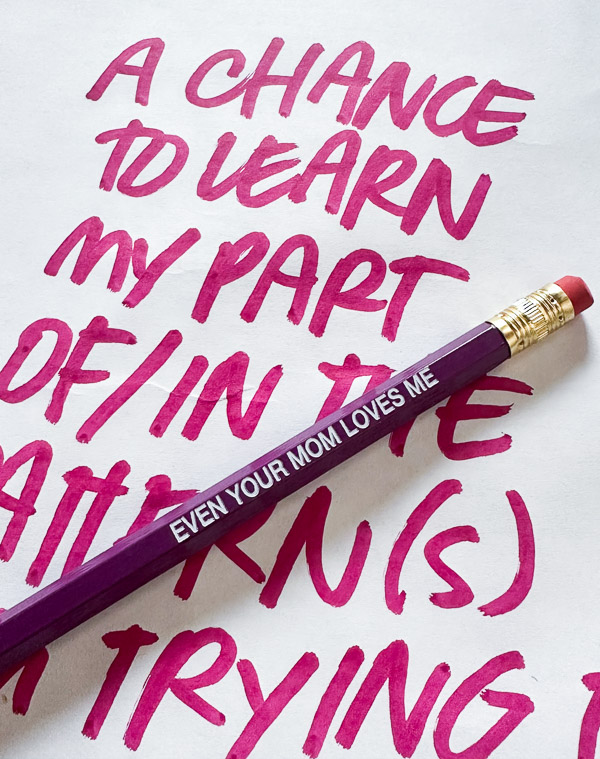 A CHANCE
TO LEARN
MY PART
OF/IN THE
PATTERN(s)
TRYING
EVEN YOUR MOM LOVES ME